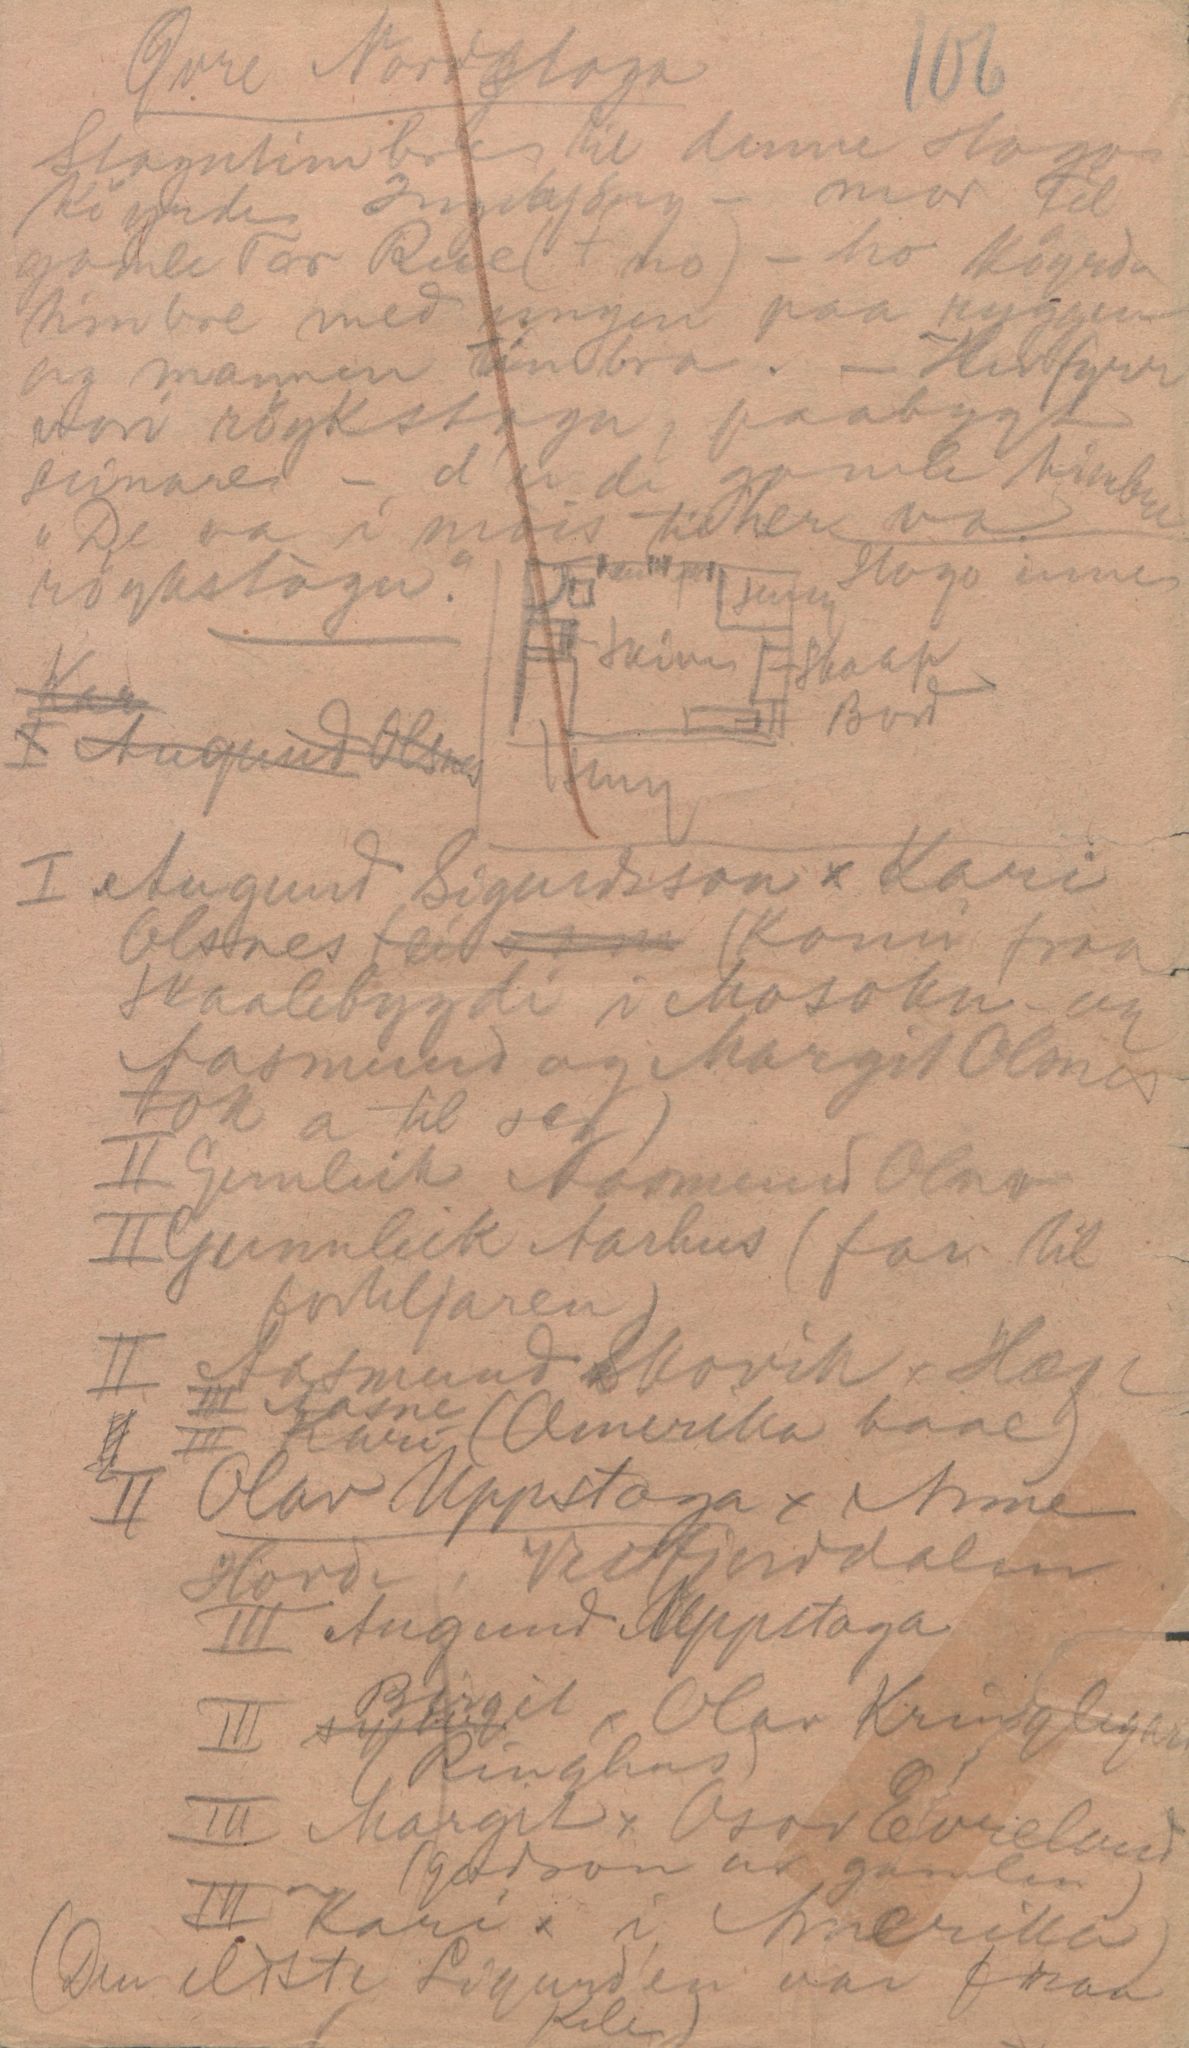 Øvre Nordstoga
106
Stogutimbre til denne stoga
köyrde Ingebjörg - mor til
gamle Tor Rue ( + no) - ho köyrde
timbre med ungen paa ryggen
og mannen timbra. - Her fyrr
vori röykstogu, paabygt
seinare - d'er de gamle timbre
"De va i mois ti her va
röykstogu."
Stogo inne
Seng
Skive
Skaap
Bord
Seng
Kar
I Augund Olsnes
I Augund Sigurdsson x Kari
Olsnes (Kom fraa
Skaalebygdi i Mosoku - og
Aasmund og Margit Olsnes
tok a til seg)
II Gunleik Aasmund Olsnes
II Gunnleik Aarhus (far til
forteljaren)
II Aasmund Skorvik x Hæge
III Aasne
III Kari (Amerika baae)
II Olav Uppstoga x Anne
Hovde, Vestfjorddalen
III Augund Uppstoga
III Birgit x Olav Kringlegard
(Ringhus)
III Margit x Osov Evjeland
(godson av gamlen)
III Kari x i Amerika)
(Den eldste Sigurden var fraa
Kile)